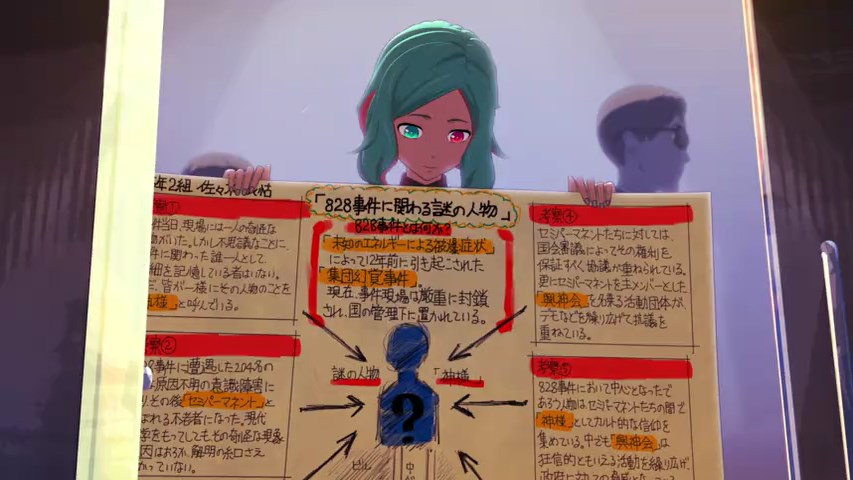 年2組 佐々
「828事件に関わる謎の人物」
828事件とは何か?
「未知のエネルギーによる被爆症状」
によって12年前に引き起こされた
「集団幻覚事件」。
現在、事件現場は厳重に封鎖
され、国の管理下に置かれている。
件当日、現場には一人の奇怪な
がいた。しかし不思議なことに、
件に関わった誰一人として
細を記憶している者はいない。
、皆が一様にその人物のことを
様」と呼んでいる。
考察②
事件に遭遇した204名の
原因不明の意識障害に
りその後「セミパーマネント」と
ばれる不老者になった。現代
学をもってしても、その奇怪な現象
因はおろか、解明の糸口さえ
かっていない。
謎の人物
「神様」
?
ビル
中
考察④
セミパーマネントたちに対しては、
国会審議によってその権利を
保証すべく協議が重ねられている。
更にセミパーマネントを主メンバーとした
「興神会」を名乗る活動団体が、
デモなどを繰り広げて抗議を
重ねている。
考察⑤
828事件において中心となったで
あろう人物はセミパーマネントたちの間で
「神様」としてカルト的な信仰を
集めている。中でも「興神会」は
狂信的ともいえる活動を繰り広げ、